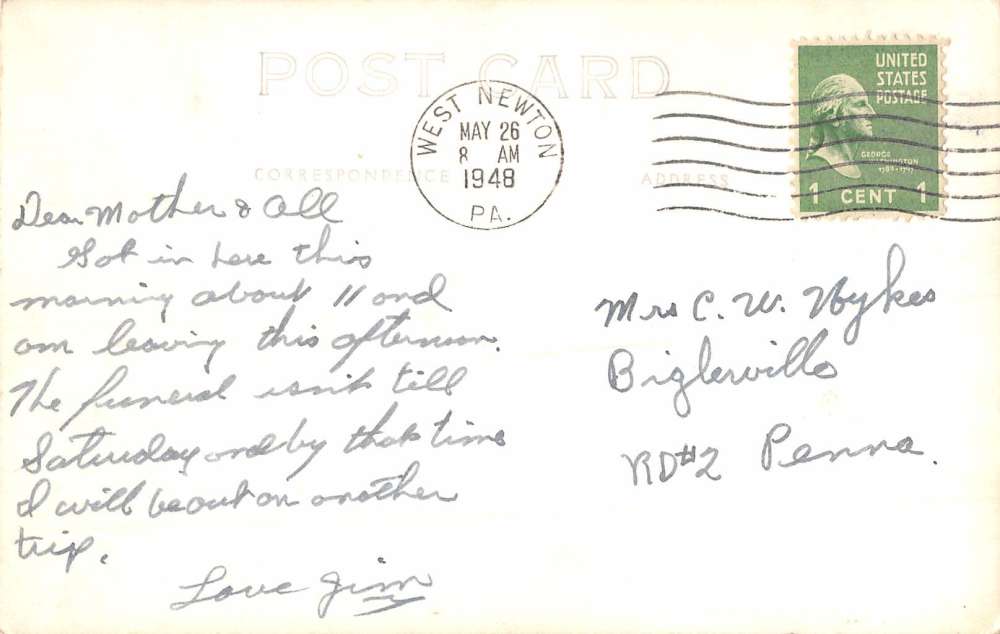 POST CARD
WEST NEWTON
MAY 26
8 AM
1948
PA.
UNITED
STATES
POSTAGE
GEORGE
WASHINGTON
1789-1797
1 CENT 1
CORRESPONDENCE
ADDRESS
Dear Mother & All
Got in here this
morning about 11 and
am leaving this afternoon.
The funeral isn't till
Saturday and by that time
I will be out on another
trip.
Love Jim
Mrs C. W. Wykes
Biglerville
RD#2 Penna.